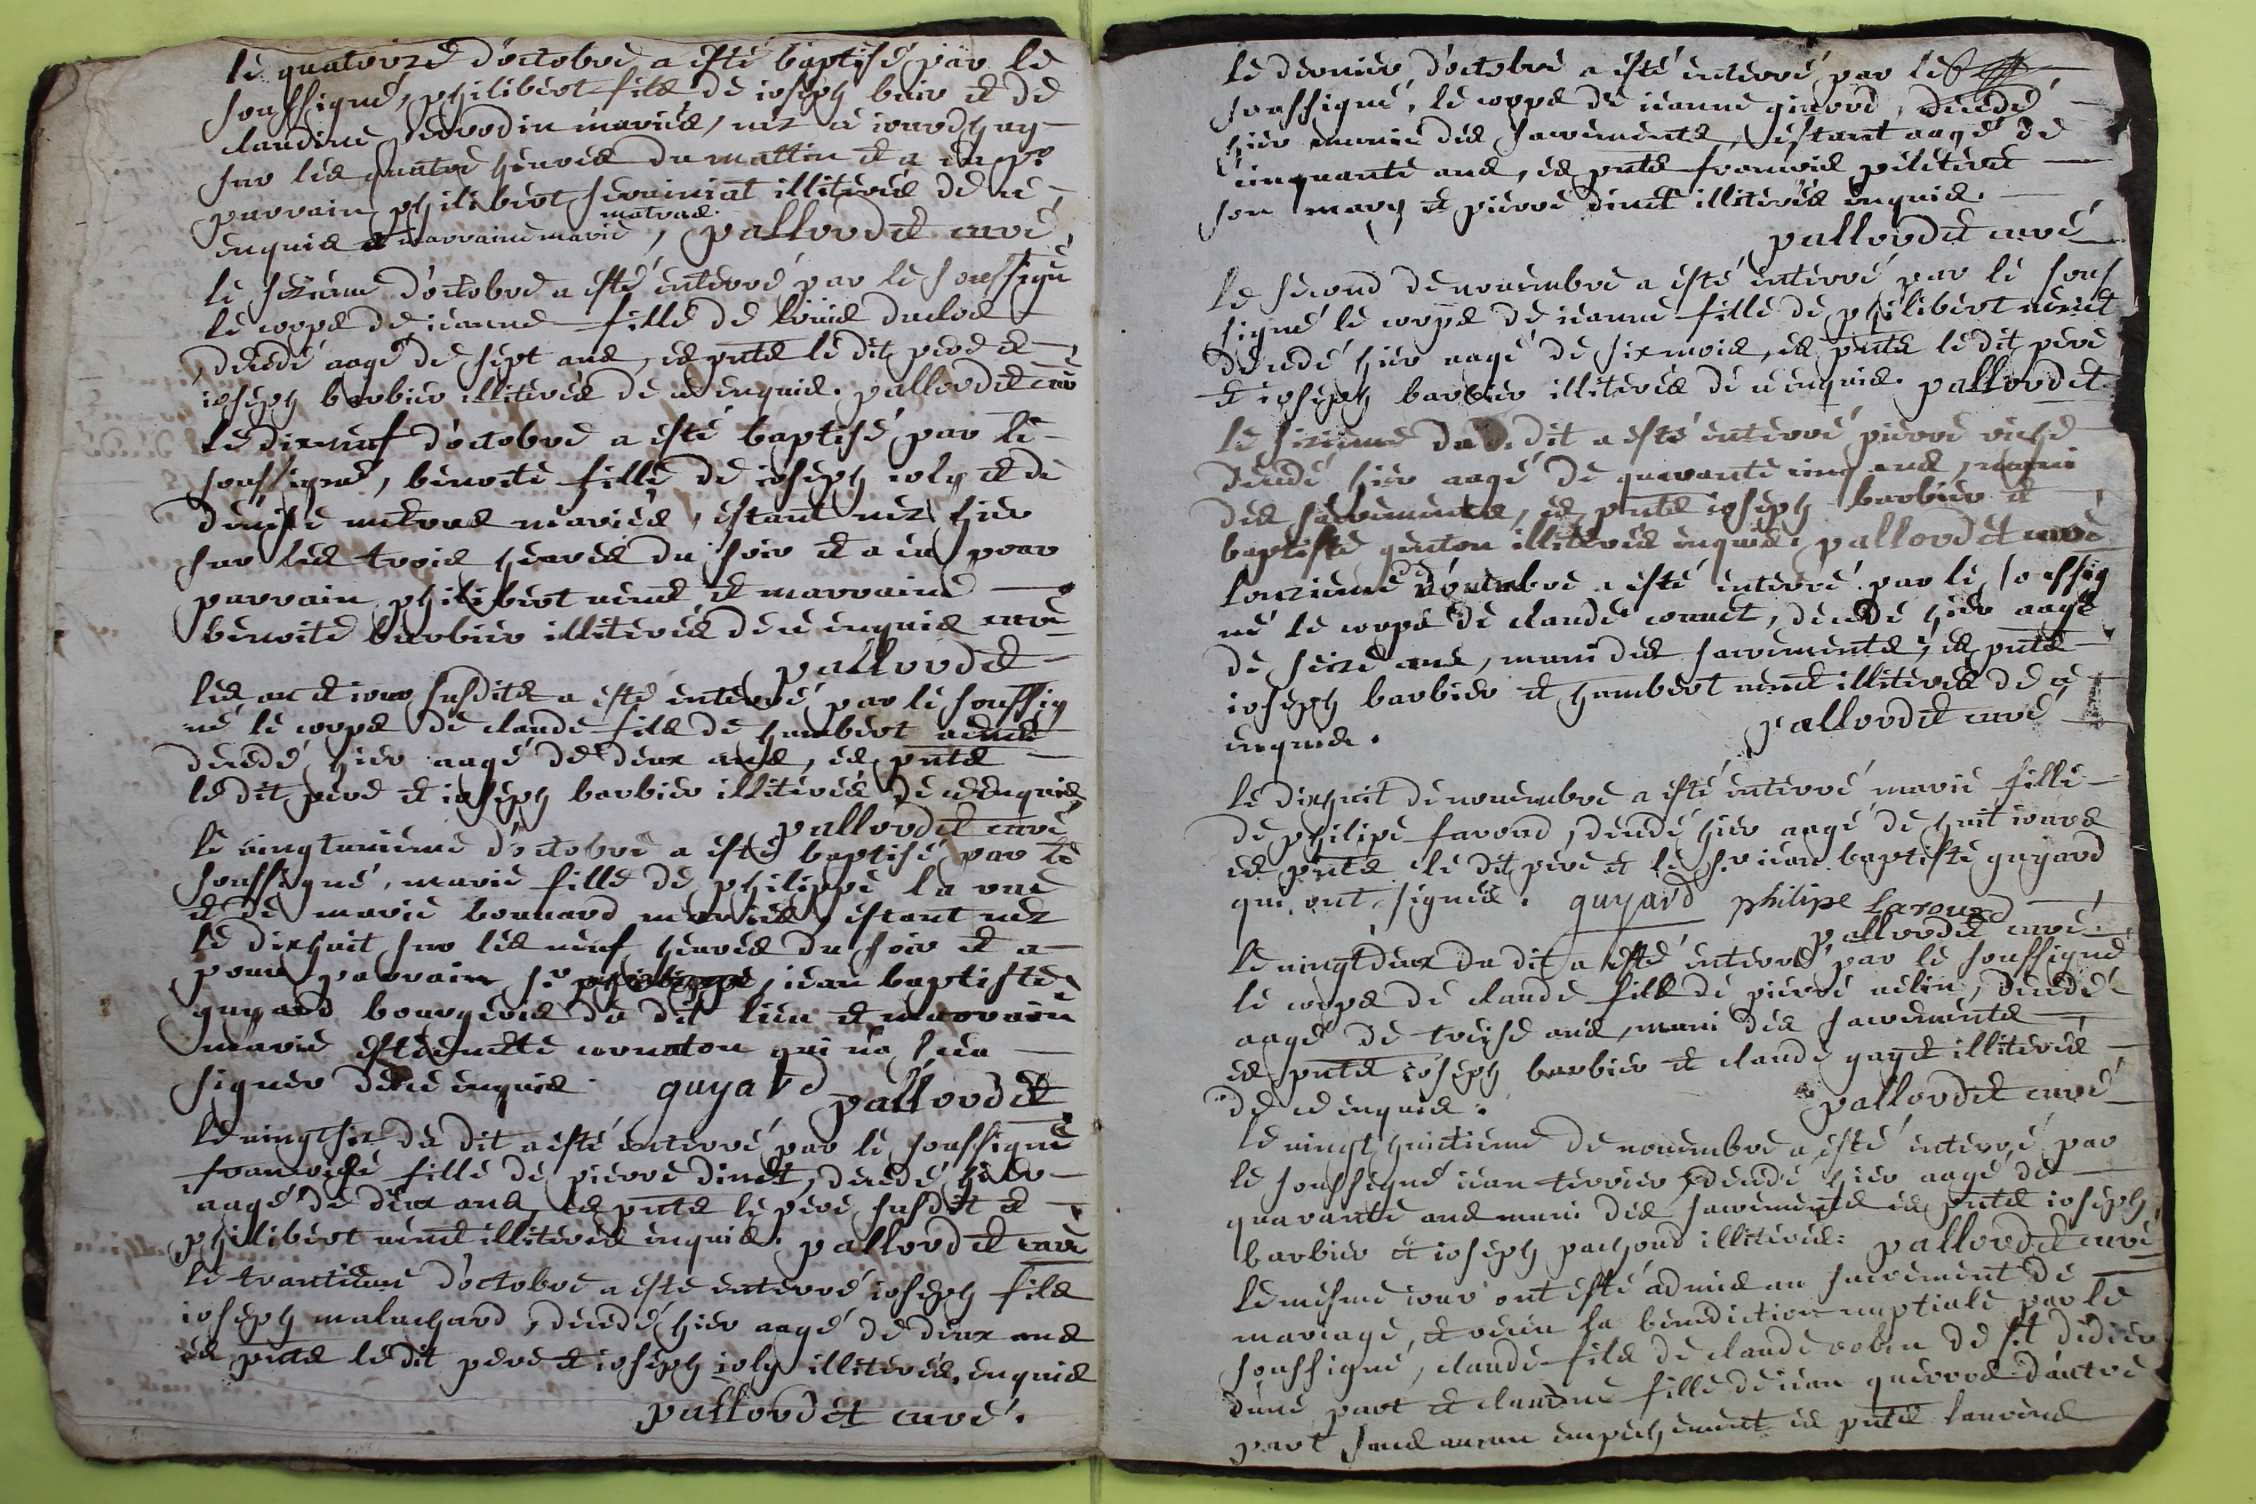 le quatorze d'octobre a esté baptisé par le
soussigné, philibert fils de ioseph bair et de
claudine perrodin mariés, nez ce iourdhuy
sur les quatre heures du mattin et a eu pr
parrain philibert illiterés de ce
enquis et marraine marie matras, pallordet curé
le sezieme d'octobre a esté enterré par le soussigné
le corps de ieanne fille de louis duclos
decedé aagé de sept ans, es pnts le dit pere et
ioseph barbier illiterés de ce enquis. pallordet curé
le dixneuf d'octobre a esté baptisé par le
soussigné, benoite fille de ioseph ioly et de
denise mariés, estant nez hier
sur les trois heures du soir et a eu pour
parrain philibert et marraine
benoite barbier illiterés de ce enquis curé
pallordet
les an et iour susdits a esté enterré par le soussig
né le corps de claude fils de humbert
decedé hier aagé de deux ans, es pnts
le dit pere et ioseph barbier illiterés de ce enquis
pallordet curé
le vingtunieme d'octobre a esté baptisé par le
soussigné, marie fille de philippe la rue
et de marie bonnard mariés, estant nez
le dixhuit sur les neuf heures du soir et a
pour parrain sr iean baptiste
guyard bourgeois du dit lieu et marraine
marie estiennette cornaton qui n'a sceu
signer de ce enquis. guyard pallordet
le vingtsix du dit a esté enterré par le soussigné
francoise fille de pierre dinet, decedé hier
aagé de deux ans, es pnts le pere susdit et
philibert illiterés enquis. pallordet curé
le trantieme d'octobre a esté enterré ioseph fils
ioseph malachard, decedé hier aagé de deux ans
es pnts le dit pere et ioseph ioly illiterés, enquis
pallordet curé.
le dernier d'octobre a esté enterré par le
soussigné, le corps de ieanne girord, decedé
hier munie des sacrements, estant aagé de
cinquante ans, es pnts francois peletret
son mary et pierre dinet illiterés enquis.
pallordet curé
le second de nouembre a esté enterré par le sous
signé le corps de ieanne fille de philibert
decedé hier aagé de six mois, es pnts le dit pere
et ioseph barbier illiterés de ce enquis. pallordet
le sixieme du dit a esté enterré pierre
decedé hier aagé de quarante cinq ans, muni
des sacrements, es pnts ioseph barbier et
baptiste genton illiterés enquis. pallordet curé
l'onzieme a esté enterré par le soussig
né le corps de claude connet, decedé hier aagé
de seize ans, muni des sacrements, es pnts
ioseph barbier et humbert illiterés de ce
enquis. pallordet curé
le dixhuit de nouembre a esté enterré marie fille
de philipe larond, decedé hier aagé de huit iours
es pnts le dit pere et le sr iean baptiste guyard
qui ont signés. guyard philipe laround
pallordet curé.
le vingtdeux du dit a esté enterré par le soussigné
le corps de claude fils de pierre velin, decedé
aagé de treise ans, muni des sacrements
es pnts ioseph barbier et claude gayet illiterés
de ce enquis. pallordet curé
le vingt huictieme de nouembre a esté enterré par
le soussigné iean terrier, decedé hier aagé de
quarante ans muni des sacrements es pnts ioseph
barbier et ioseph pachoud illiterés: pallordet curé
le mesme iour ont esté admis au sacrement de
mariage, et receu la benediction nuptiale par le
soussigné, claude fils de claude robin de st didier
d'une part et claudine fille de iean d'autre
part sans aucun empechement es pnts laurens